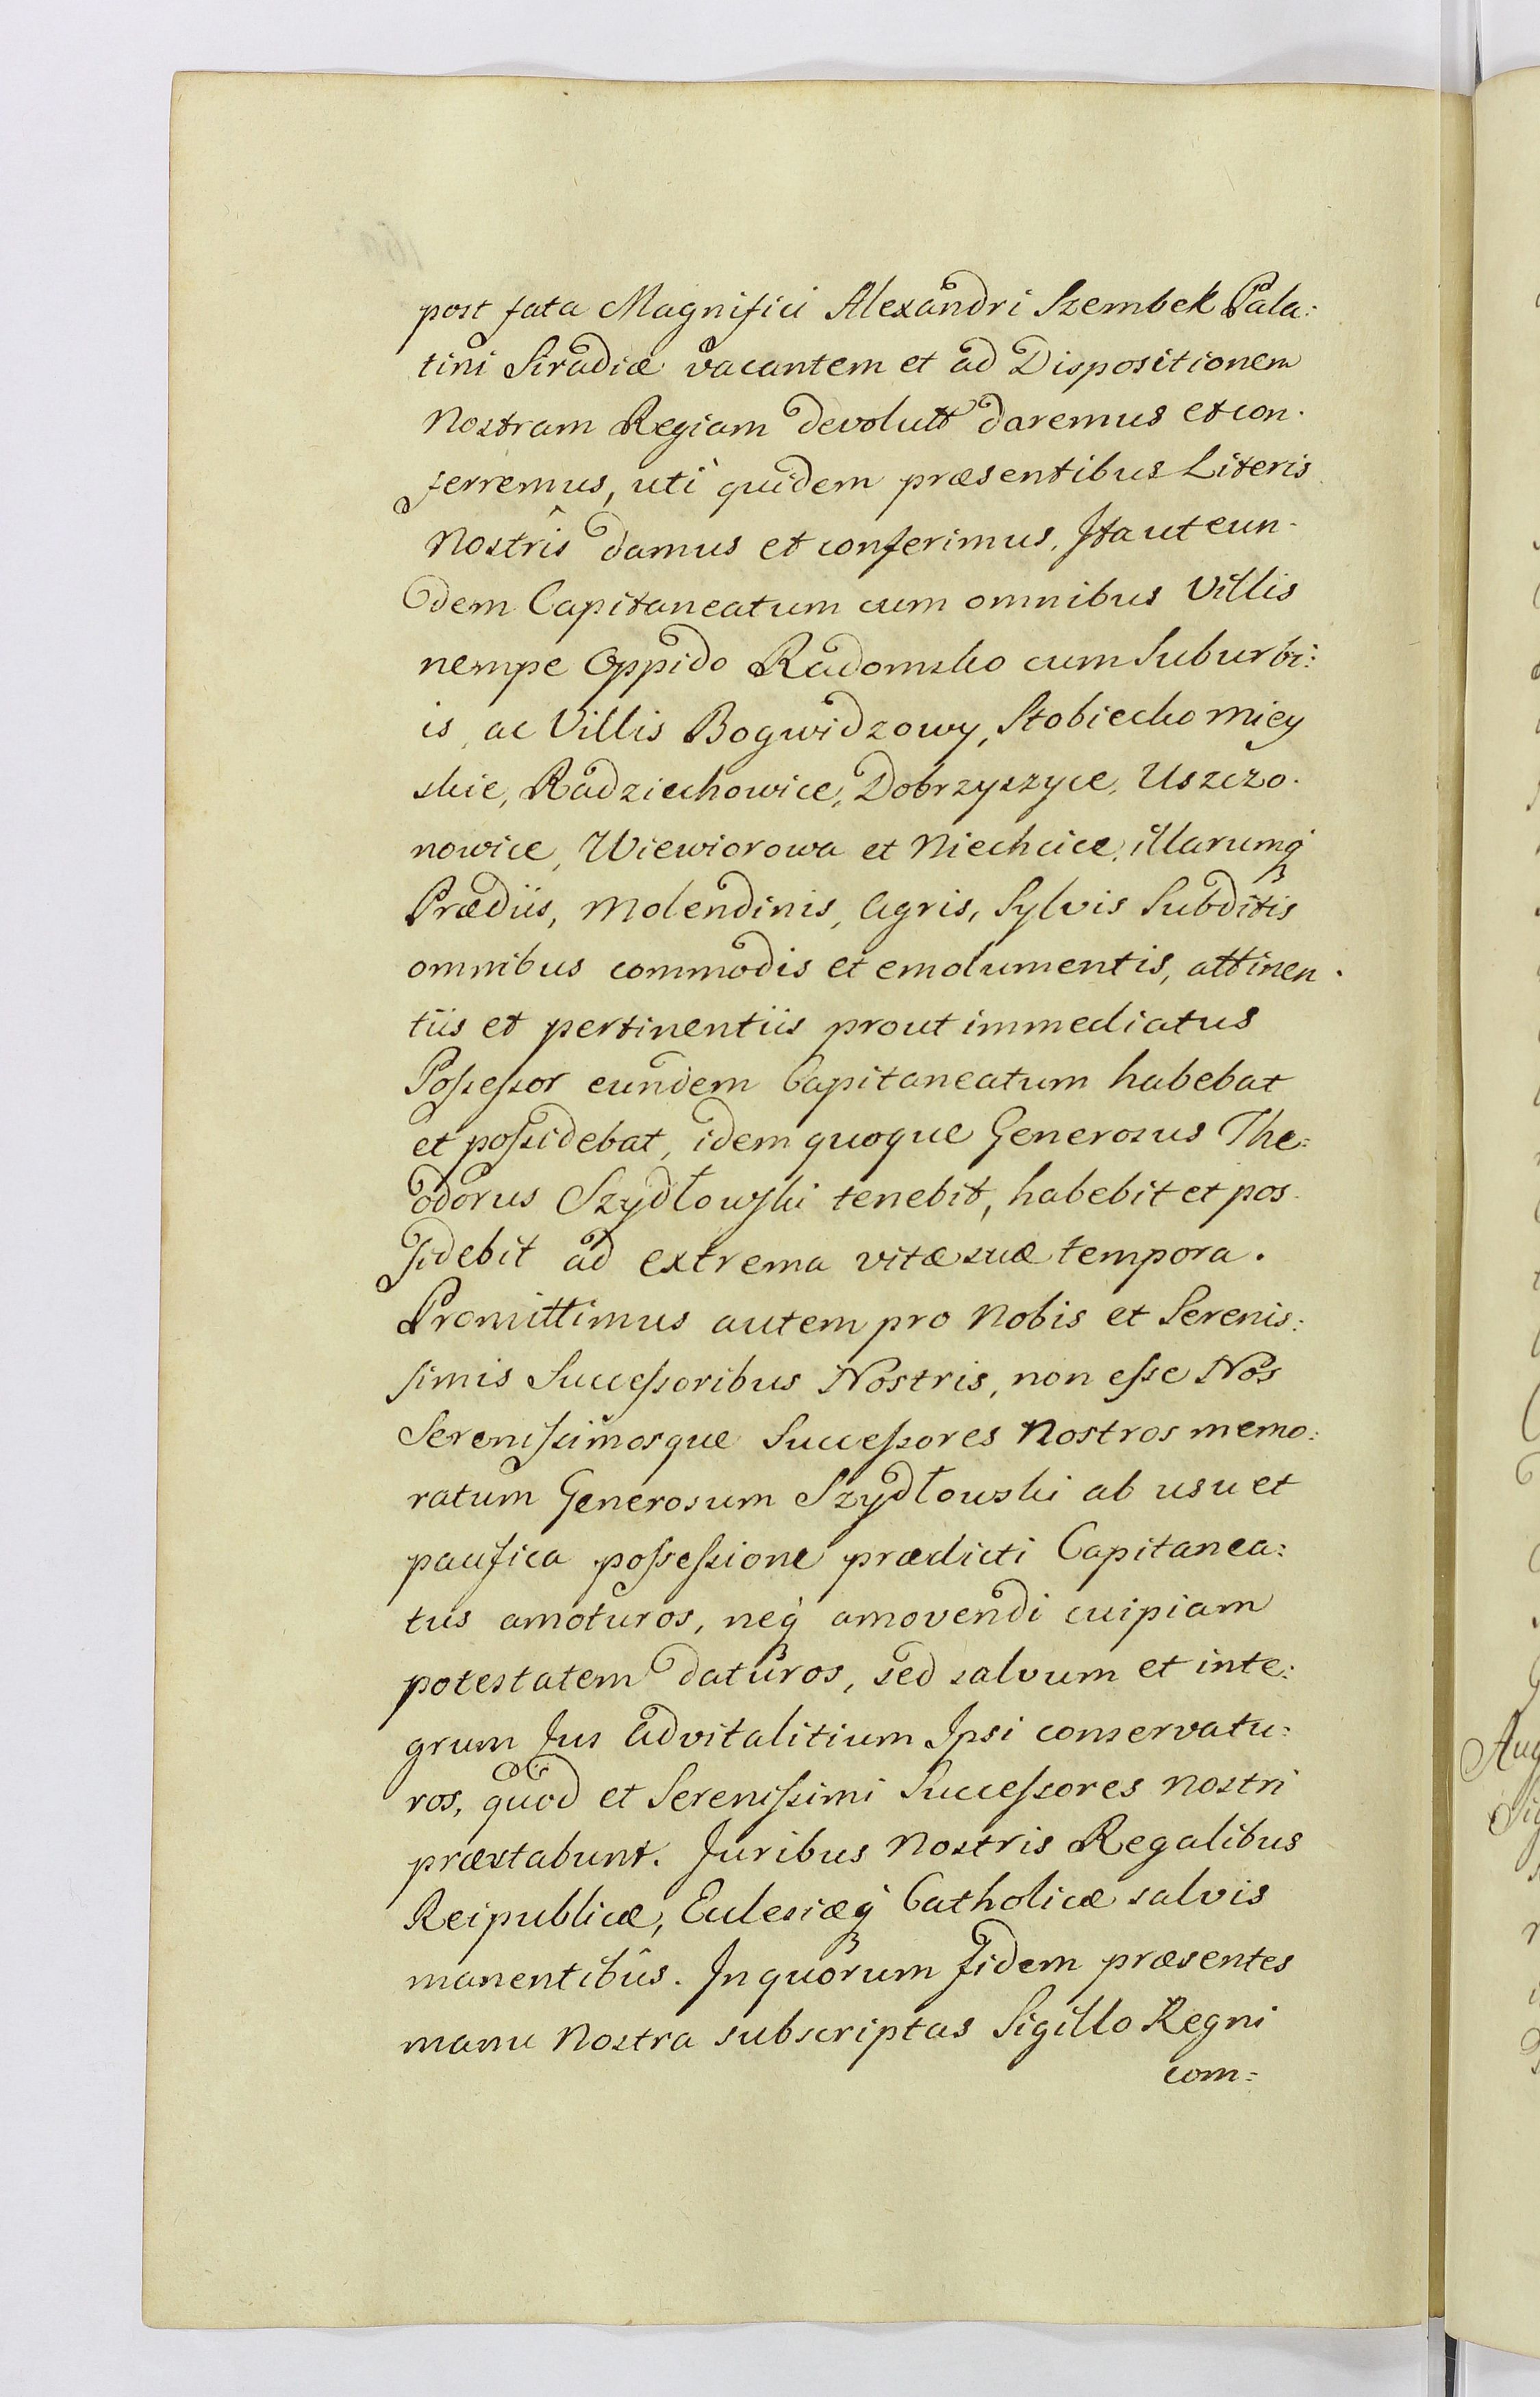 post fata Magnifici Alexandri Szembek Pala:
tini Siradiæ vacantem et ad Dispositionem
Nostram Regiam devolutt daremus et con.
ferremus, uti quidem præsentibus Literis
Nostris damus et conferimus. Ita ut eun-
dem Capitaneatum cum omnibus Villis
nempe Oppido Radomsko cum Suburbi:
is, ac Villis Bogwidzowy, Stobiecko Miey
skie, Radziechowice, Dobrzyszyce, Uszczo.
nowice, Wiewiorowa et Niechcice, illarumq
Prædiis, Molendinis, Agris, Sylvis Subditis
omnibus commodis et emolumentis, attinen.
tiis et pertinentiis prout immediatus
Possessor eundem Capitaneatum habebat
et possidebat, idem quoque Generosus The:
odorus Szydłowski tenebit, habebit et pos-
sidebit ad extrema vitæ suæ tempora.
Promittimus autem pro Nobis et Serenis:
simis Successoribus Nostris, non esse Nos
Serenissimosque Successores Nostros memo:
ratum Generosum Szydłowski ab usu et
pacifica possessione prædicti Capitanea:
tus amoturos, neq amovendi cuipiam
potestatem daturos, sed salvum et inte:
grum Jus Advitalitium Ipsi conservatu:
ros, quod et Serenissimi Successores nostri
præstabunt. Juribus Nostris Regalibus
Reipublicæ, Eclesiæq Catholicæ salvis
manentibus. In quorum fidem præsentes
manu Nostra subscriptas Sigillo Regni
com:
Aug
Sig